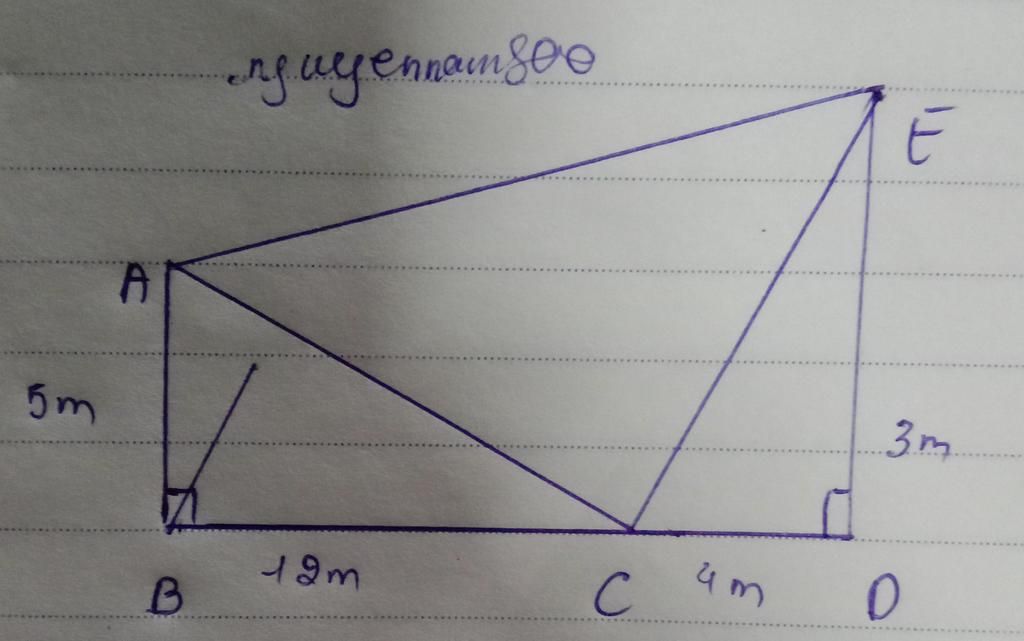 nguyennam800
E
A
5m
3m
12m
4m
B
C
D